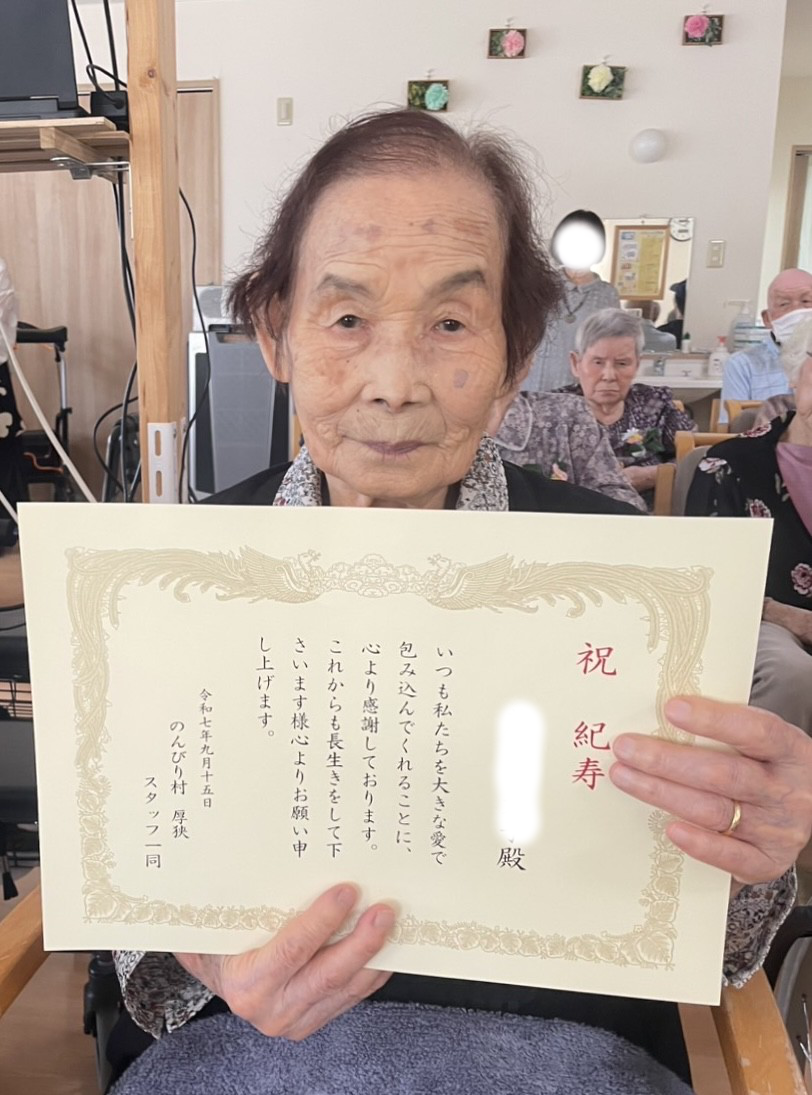 祝 紀寿
殿
いつも私たちを大きな愛で
包み込んでくれることに、
心より感謝しております。
これからも長生きをして下
さいます様心よりお願い申
し上げます。
令和七年九月十五日
のんびり村 厚狭
スタッフ一同